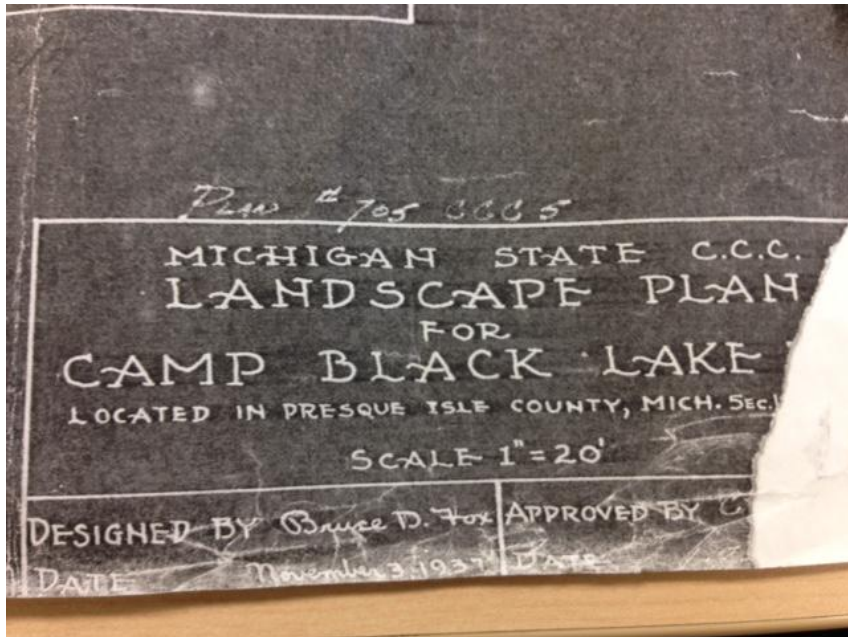 Plan # 705 CCC 5
MICHIGAN STATE C.C.C.
LANDSCAPE PLAN
FOR
CAMP BLACK LAKE
LOCATED IN PRESQUE ISLE COUNTY, MICH. SEC.
SCALE 1"=20'
DESIGNED BY Bruce D. Fox APPROVED BY
DATE November 3, 1937 DATE